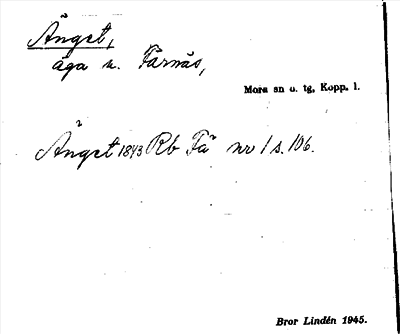 Änget,
äga n. Färnäs,
Mora sn o. tg, Kopp. l.
Änget 1843 Rb Fä nr 1 s. 106.
Bror Lindén 1945.